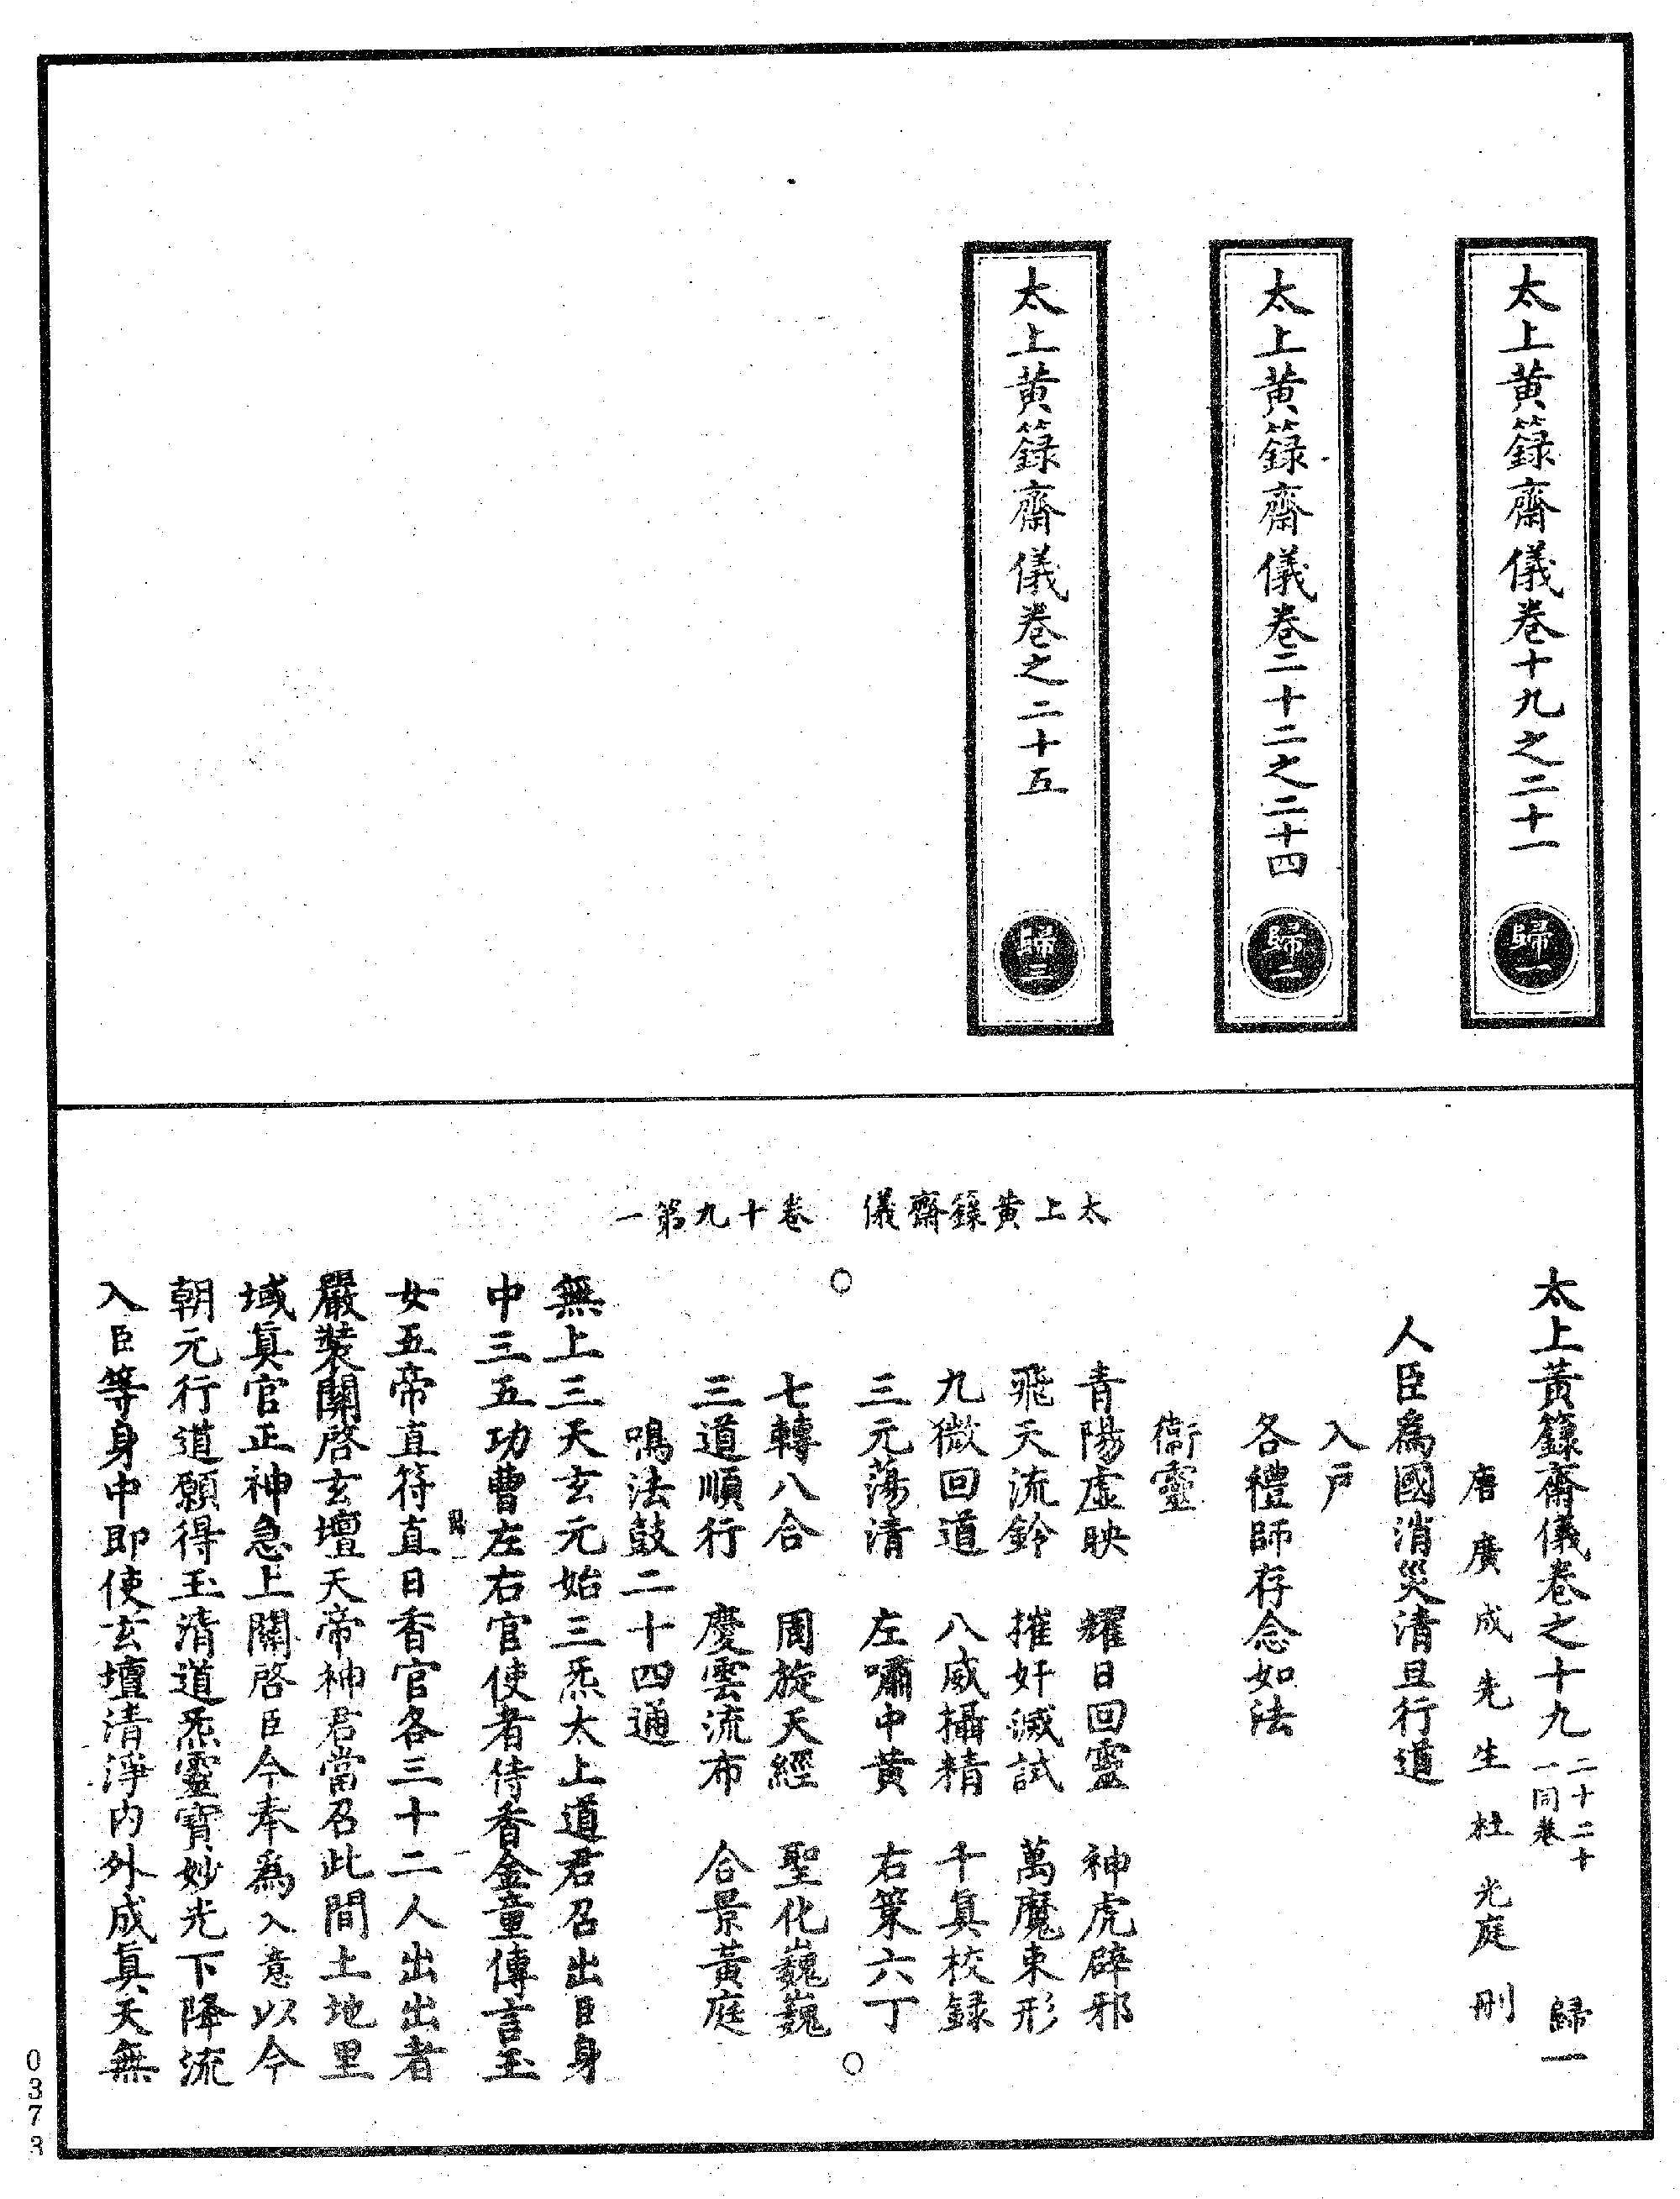 太上黄籙齋儀卷十九之二十一 歸一
太上黄籙齋儀卷二十二之二十四 歸二
太上黄籙齋儀卷之二十五 歸三
太上黄籙齋儀 卷十九第一
太上黃籙齋儀卷之十九 二十二十一同卷 歸一
唐廣成先生杜光庭刪
人臣爲國消災清旦行道
入戶
各禮師存念如法
衞靈
青陽虛映 耀日回靈 神虎辟邪
飛天流鈴 摧奸滅試 萬魔束形
九微回道 八威攝精 千眞校録
三元蕩清 左嘯中黃 右策六丁
七轉八合 周旋天經 聖化巍巍
三道順行 慶雲流布 合景黃庭
鳴法鼓二十四通
無上三天玄元始三炁太上道君召出臣身
中三五功曹左右官使者侍香金童傳言玉
女五帝直符直日香官各三十二人出出者
嚴裝關啓玄壇天帝神君當召此間土地里
域眞官正神急上關啓臣今奉爲入意以今
朝元行道願得玉清道炁靈寶妙光下降流
入臣等身中即使玄壇清淨内外成眞天無
0373